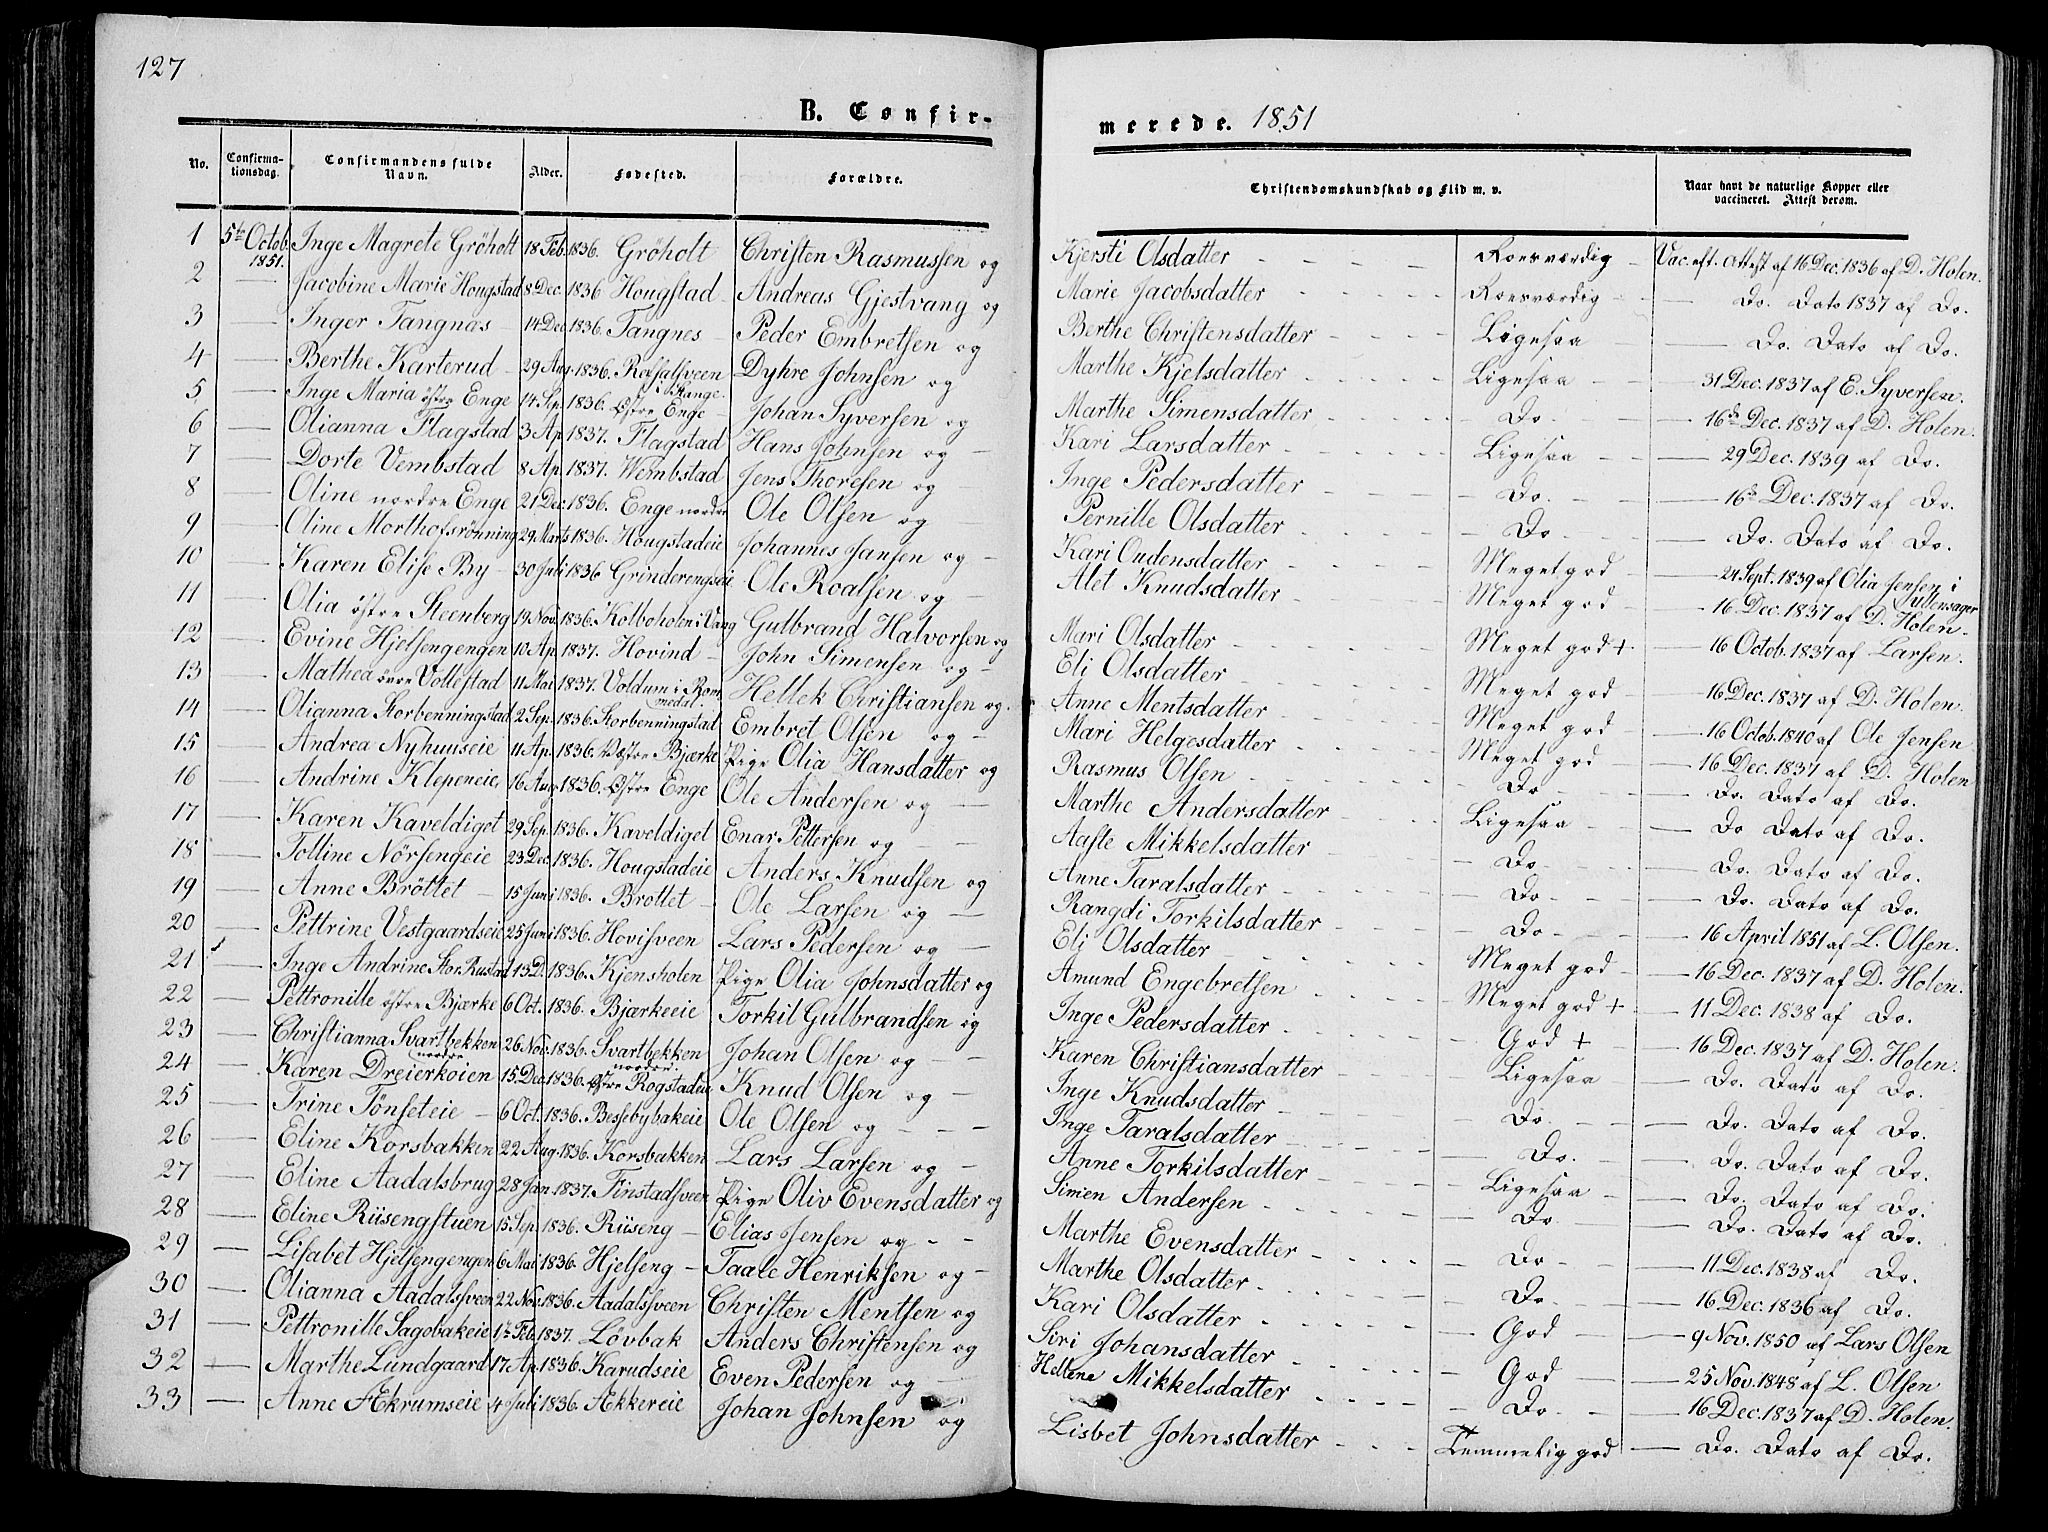 127
B. Confir-
merede. 1851
No. Confirma-tionsdag. Confirmandens fulde Navn. Alder. Fødested. Forældre. Christendomskundskab og Flid m. v. Naar havt de naturlige Kopper eller vaccineret. Attest derom.
1 5te Octob. 1851. Inge Magrete Gröholt 18 Feb. 1836. Gröholt Christen Rasmussen og Kjersti Olsdatter - - - Roesværdig - Vac. eft. Attest af 16 Dec. 1836 af D. Holen.
2 — Jacobine Marie Hougstad 8 Dec. 1836 Hougstad Andreas Gjestvang og Marie Jacobsdatter - - - Roesværdig - — Do. Dato 1837 af Do.
3 — Inger Tangnas 14 Dec. 1836. Tangnes Peder Embretsen og Berthe Christensdatter - - - Ligesaa — Do. Dato af Do.
4 — Berthe Karterud 29 Aug. 1836. Rossalsveen i Stange. Dyhre Johnsen og Marthe Kjelsdatter - - - Ligesaa — 31 Dec. 1837 af E. Syversen.
5 — Inge Maria östre Enge 14 Sep. 1836. Østre Enge Johan Syversen og Marthe Simensdatter - - - Do. — 16de Dec. 1837 af D. Holen.
6 — Olianna Flagstad 3 Ap. 1837. Flagstad Hans Johnsen og Kari Larsdatter - - - Ligesaa — 29 Dec. 1839 af Do.
7 — Dorte Vembstad 8 Ap. 1837. Wembstad Jens Thoresen og Inge Pedersdatter - - - Do. — 16de Dec. 1837 af Do.
8 — Oline nordre Enge 21 Dec. 1836. Enge nordre Ole Olsen og Pernille Olsdatter - - - Do — Do. Dato af Do.
9 — Oline Morthofsrönning 29 Marts 1836. Hougstadeie Johannes Jansen og Kari Oudensdatter - - - Meget god — 24 Sept. 1839 af Olia Jensen i
10 — Karen Elise By 30 Juli 1836 Grinderengseie Ole Roalsen og Alet Knudsdatter - - - Meget god — 16 Dec. 1837 af D. Holen.
11 — Olia östre Steenberg 19 Nov. 1836. Kolboholen i Vang Gulbrand Halvorsen og Mari Olsdatter - - - Meget god + — 16 Octob. 1837 af Larsen.
12 — Evine Hjelsengengen 10 Ap. 1837. Hovind John Simensen og Eli Olsdatter - - - Meget god — 16 Dec. 1837 af D. Holen.
13 — Mathea övre Vollestad 11 Mai 1837. Voldum i Rommedal. Hellek Christiansen og Anne Mentsdatter - - - Meget god — 16 Octob. 1840 af Ole Jensen
14 — Olianna Storbenningstad 2 Sep. 1836. Storbenningstad Embret Olsen og Mari Helgesdatter - - - Meget god — 16 Dec. 1837 af D. Holen
15 — Andrea Nyhuuseie 11 Ap. 1836. Væstre Bjærke Pige Olia Hansdatter og Rasmus Olsen - - - Do — Do. Dato af Do.
16 — Andrine Klepeneie 16 Aug. 1836. Østre Enge Ole Andersen og Marthe Andersdatter - - - Ligesaa — Do Dato af Do.
17 — Karen Kaveldiget 29 Sep. 1836. Kaveldiget Enar Pettersen og Aaste Mikkelsdatter - - - Do — Do. Dato af Do.
18 — Tolline Nörsengeie 23 Dec. 1836. Hougstadeie Anders Knudsen og Anne Taralsdatter - - - Do — Do. Dato af Do.
19 — Anne Bröttet 15 Juni 1836. Brottet Ole Larsen og Rangdi Torkilsdatter - - - Do — 16 April 1851 af L. Olsen.
20 — Pettrine Vestgaardseie 25 Juni 1836. Hovisveen Lars Pedersen og Eli Olsdatter - - - Meget god — 16 Dec. 1837 af D. Holen.
21 — Inge Andrine Stor Rustad 13 D. 1836. Kjensholen Pige Olia Johnsdatter og Amund Engebretsen - - - Meget god + — 11 Dec. 1838 af Do.
22 — Pettronille östre Bjærke 6 Oct. 1836. Bjærkeeie Torkil Gulbrandsen og Inge Pedersdatter - - - God + — 16 Dec. 1837 af D. Holen.
23 — Christianna Svartbekken 26 Nov. 1836. Svartbekken Johan Olsen og Karen Christiansdatter - - - Ligesaa — Do. Dato af Do.
24 — Karen nordre Dreierkoien 15 Dec. 1836. Østre nordre Rogstadeie Knud Olsen og Inge Knudsdatter - - - Do. — Do. Dato af Do.
25 — Trine Tönseteie 6 Oct. 1836. Bessebybakeie Ole Olsen og Inge Taralsdatter - - - Do. — Do. Dato af Do.
26 — Eline Korsbakken 22 Aug. 1836. Korsbakken Lars Larsen og Anne Torkilsdatter - - - Ligesaa — Do. Dato af Do.
27 — Eline Aadalsbrug 28 Jan. 1837. Finstadsveen Pige Oliv Evensdatter og Simen Andersen - - - Do — Do. Dato af Do.
28 — Eline Riisengstuen 15 Sep. 1836. Riiseng Elias Jensen og Marthe Evensdatter - - - Do — 11 Dec. 1838 af Do.
29 — Lisabet Hjelsengengen 6 Mai 1836. Hjelseng Taale Henriksen og Marthe Olsdatter - - - Do — 16 Dec. 1836 af Do.
30 — Olianna Aadalssveen 22 Nov. 1836. Aadalssveen Christen Mentsen og Kari Olsdatter - - - God — 9 Nov. 1850 af Lars Olsen
31 — Pettronille Sagobakeie 1te Feb. 1837. Lövbak Anders Christensen og Siri Johansdatter - - - God — 25 Nov. 1848 af L. Olsen
32 — Marthe Lundgaard 17 Ap. 1836. Karudseie Even Pedersen og Hellene Mikkelsdatter - - - Do — 16 Dec. 1837 af D. Holen.
33 — Anne Ækrumseie 4 Juli 1836. Ækkereie Johan Johnsen og Lisbet Johnsdatter - - - Temmelig god — Do. Dato af Do.